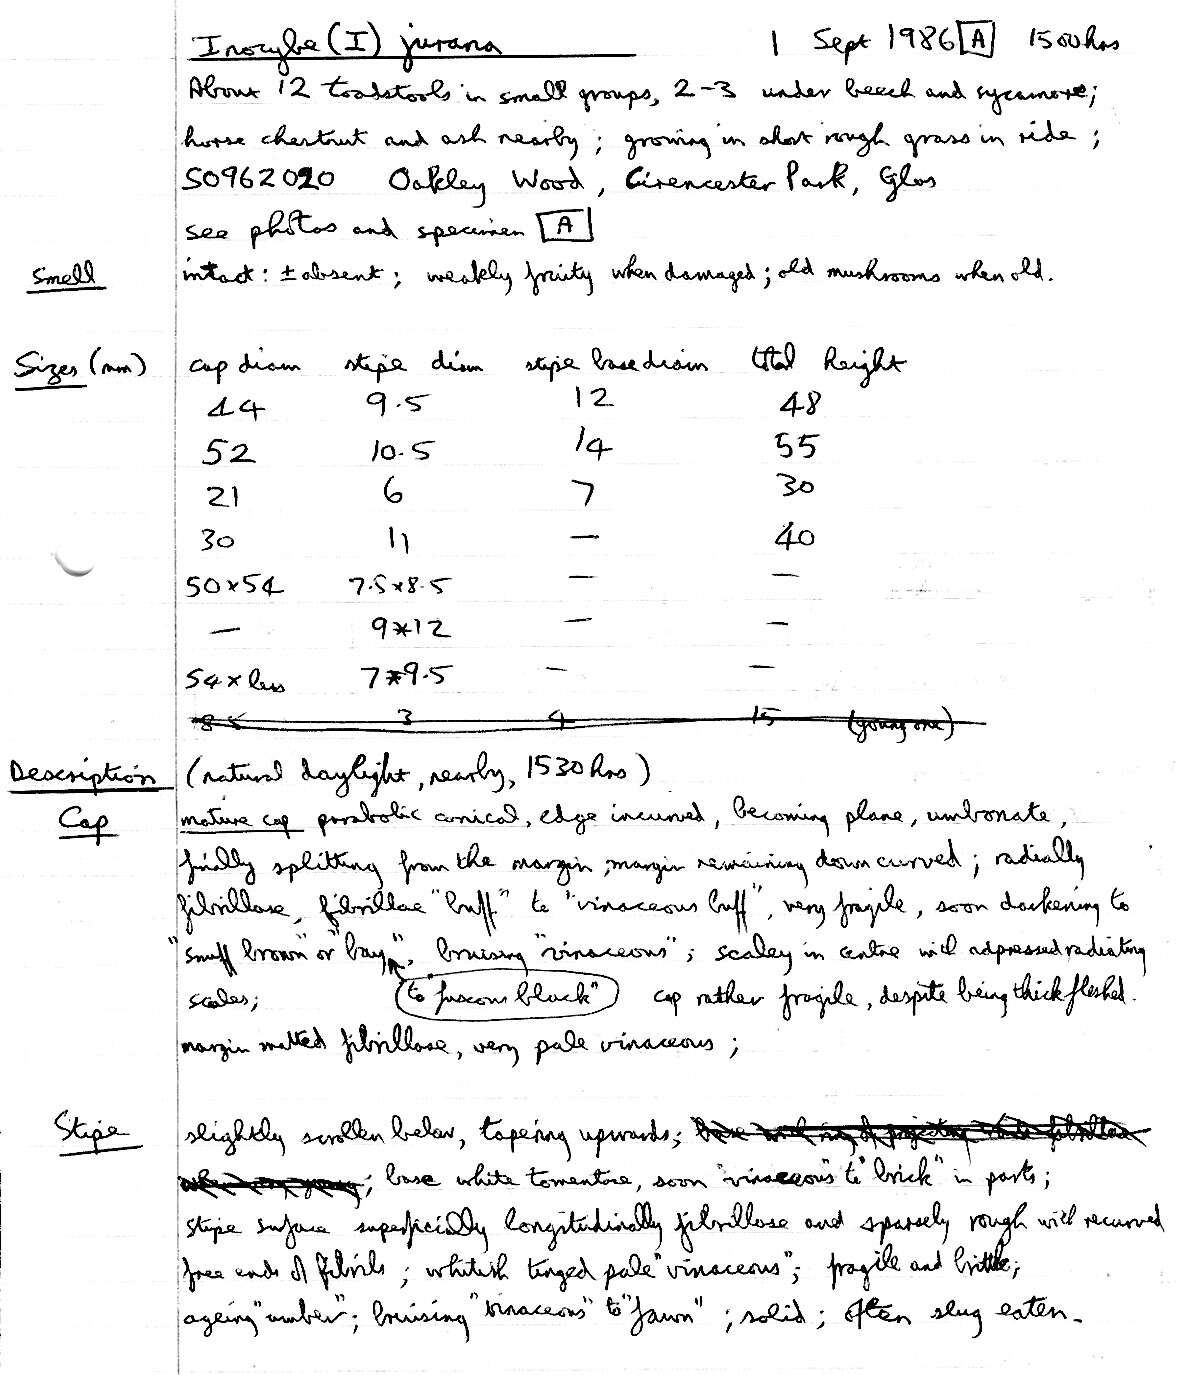 Inocybe (I) jurana 1 Sept 1986 [A] 1500hrs
About 12 toadstools in small groups, 2-3 under beech and sycamore;
horse chestnut and ash nearby; growing in short rough grass in ride;
SO962020 Oakley Wood, Cirencester Park, Glos
see photos and specimen [A]
Smell intact: ± absent; weakly fruity when damaged; old mushrooms when old.
Sizes (mm) cap diam stipe diam stipe base diam total height
44 9.5 12 48
52 10.5 14 55
21 6 7 30
30 11 — 40
50×54 7.5×8.5 — —
— 9×12 — —
54 × less 7×9.5 — —
8.5 3 4 15 (young one)
Description (natural daylight, nearby, 1530hrs)
Cap mature cap parabolic conical, edge incurved, becoming plane, umbonate,
finally splitting from the margin, margin remaining down curved; radially
fibrillose, fibrillae "buff" to "vinaceous buff", very fragile, soon darkening to
"snuff brown" or "bay", bruising "vinaceous"; scaley in centre with adpressed radiating
scales; to "fuscous black" cap rather fragile, despite being thick fleshed.
margin matted fibrillose, very pale vinaceous;
Stipe slightly swollen below, tapering upwards; base with ring of projecting white fibrillae
when very young; base white tomentose, soon "vinaceous" to "brick" in parts;
stipe surface superficially longitudinally fibrillose and sparsely rough with recurved
free ends of fibrils; whitish tinged pale "vinaceous"; fragile and brittle;
ageing "umber"; bruising "vinaceous" to "fawn"; solid; often slug eaten.